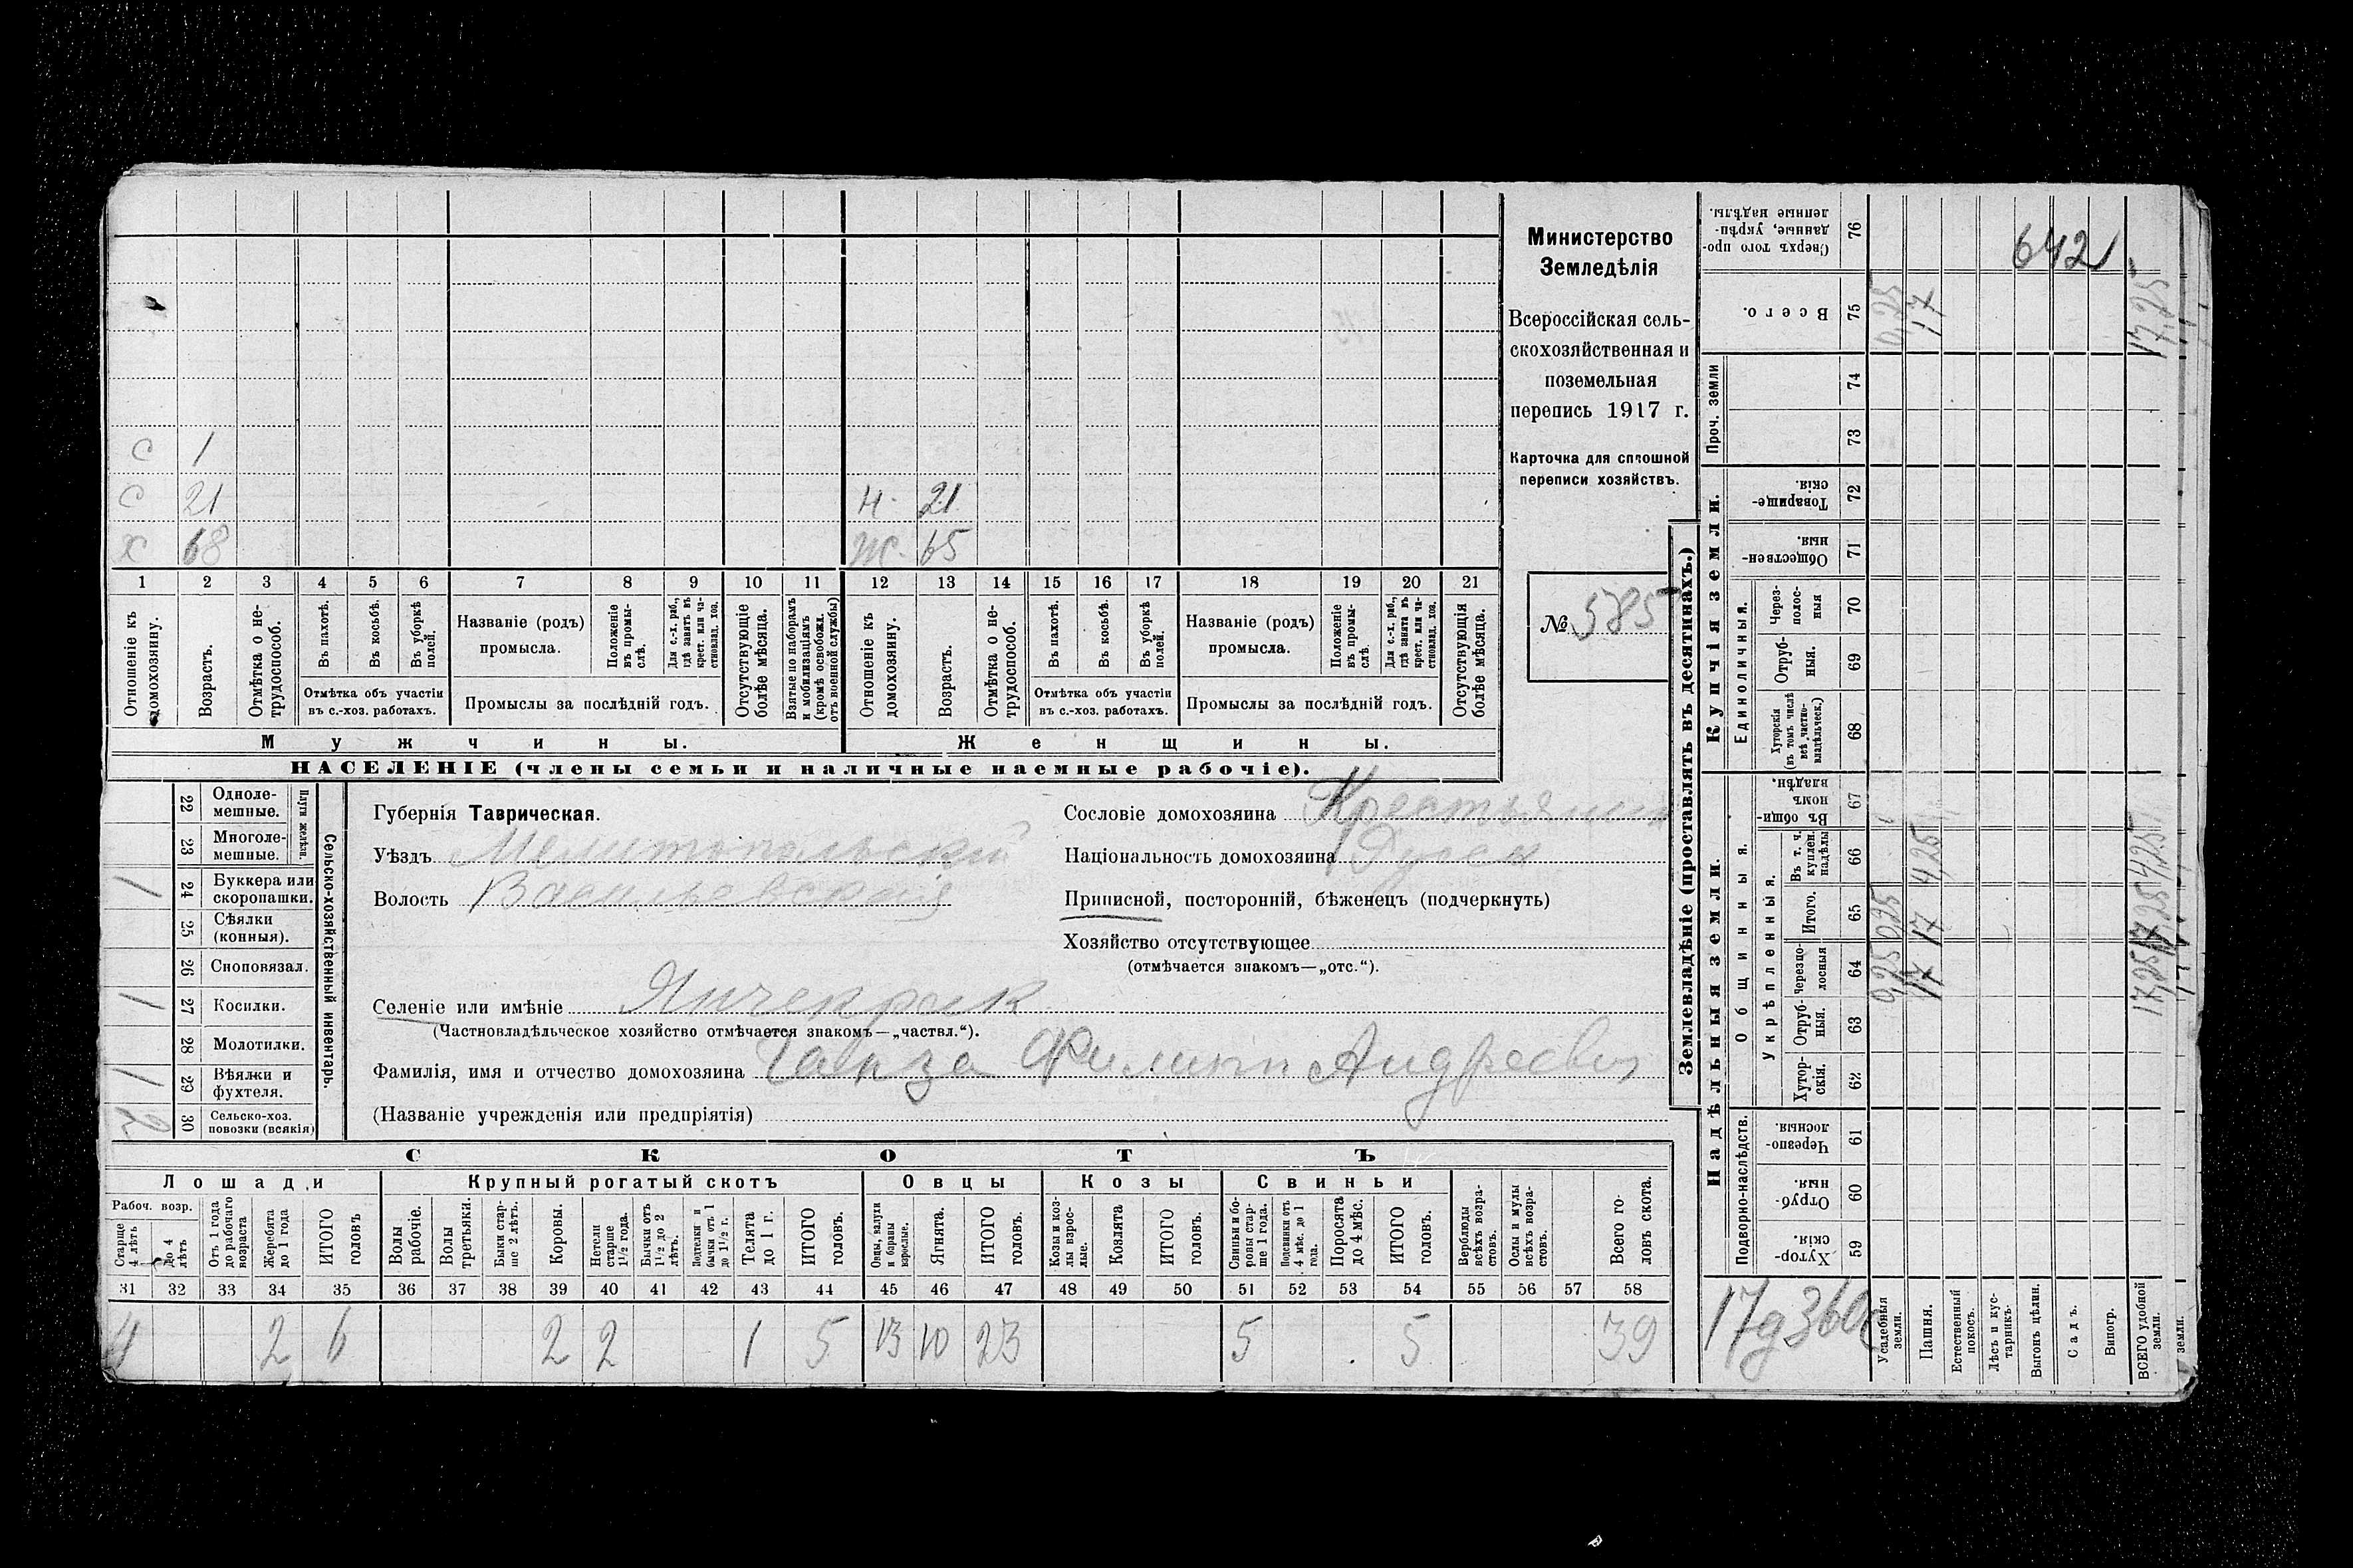 С 1
С 21 Н. 21
Х 68 Ж. 65
1 2 3 4 5 6 7 8 9 10 11 12 13 14 15 16 17 18 19 20 21
Отношеніе къ домохозяину.
Возрастъ.
Отмѣтка о нетрудоспособ.
Въ пахотѣ.
Въ косьбѣ.
Въ уборкѣ полей.
Отмѣтка объ участіи
въ с.-хоз. работахъ.
Названіе (родъ)
промысла.
Положеніе въ промыслѣ.
Для с.-х. раб., гдѣ занятъ въ крест. или частновлад. хоз.
Промыслы за послѣдній годъ.
Отсутствующіе болѣе мѣсяца.
Взятые по наборамъ и мобилизаціямъ (кромѣ освобожд. отъ военной службы)
Отношеніе къ домохозяину.
Возрастъ.
Отмѣтка о нетрудоспособ.
Въ пахотѣ.
Въ косьбѣ.
Въ уборкѣ полей.
Отмѣтка объ участіи
въ с.-хоз. работахъ.
Названіе (родъ)
промысла.
Положеніе въ промыслѣ.
Для с.-х. раб., гдѣ занята въ крест. или частновлад. хоз.
Промыслы за послѣдній годъ.
Отсутствующія болѣе мѣсяца.
Мужчины.
Женщины.
НАСЕЛЕНІЕ (члены семьи и наличные наемные рабочіе).
Министерство
Земледѣлія
Всероссійская сель-
скохозяйственная и
поземельная
перепись 1917 г.
Карточка для сплошной
переписи хозяйствъ.
№ 585
Сельско-хозяйственный инвентарь.
Плуги желѣзн.
22 Однолемешные.
23 Многолемешные.
1 24 Буккера или скоропашки.
25 Сѣялки (конныя).
26 Сноповязал.
1 27 Косилки.
28 Молотилки.
1 29 Вѣялки и фухтеля.
2 30 Сельско-хоз. повозки (всякія)
Губернія Таврическая.
Уѣздъ Мелитопольскій
Волость Васильевская
Сословіе домохозяина Крестьянин
Національность домохозяина Русск
Приписной, посторонній, бѣженецъ (подчеркнуть)
Хозяйство отсутствующее
(отмѣчается знакомъ—„отс.“).
Селеніе или имѣніе Янчекрак
(Частновладѣльческое хозяйство отмѣчается знакомъ—„частвл.“).
Фамилія, имя и отчество домохозяина Ганза Филипп Андреевич
(Названіе учрежденія или предпріятія)
СКОТЪ
Лошади Крупный рогатый скотъ Овцы Козы Свиньи
Рабоч. возр.
Старше 4 лѣтъ
До 4 лѣтъ
Отъ 1 года до рабочаго возраста
Жеребята до 1 года
ИТОГО головъ
Волы рабочіе.
Волы третьяки.
Быки старше 2 лѣтъ.
Коровы.
Нетели старше 1½ года.
Бычки отъ 1½ до 2 лѣтъ.
Подтелки и бычки отъ 1 до 1½ г.
Телята до 1 г.
ИТОГО головъ.
Овцы, валухи и бараны взрослые.
Ягнята.
ИТОГО головъ.
Козы и козлы взрослые.
Козлята
ИТОГО головъ.
Свиньи и боровы старше 1 года.
Подсвинки отъ 4 мѣс. до 1 года.
Поросята до 4 мѣс.
ИТОГО головъ.
Верблюды всѣхъ возрастовъ.
Ослы и мулы всѣхъ возрастовъ.
Всего головъ скота.
31 32 33 34 35 36 37 38 39 40 41 42 43 44 45 46 47 48 49 50 51 52 53 54 55 56 57 58
4 2 6 2 2 1 5 13 10 23 5 5 39
Землевладѣніе (проставлять въ десятинахъ.)
Надѣльныя земли.
Купчія земли.
Проч. земли
Подворно-наслѣдств.
Общинныя.
Укрѣпленныя.
Единоличныя.
59 Хуторскія.
60 Отрубныя.
61 Черезполосныя.
62 Хуторскія.
63 Отрубныя.
64 Черезполосныя
65 Итого.
66 Въ т. ч. куплен. надѣлы
67 Въ общинномъ владѣн.
68 Хуторскія (въ томъ числѣ всѣ частновладѣльческ.)
69 Отрубныя.
70 Черезполосныя
71 Общественныя.
72 Товарищескія.
73
74
75 Всего.
76 Сверхъ того проданные, укрѣпленные надѣлы.
642
Усадебныя земли. 0,25 0,25 0,25
Пашня. 17 17 4,25 17
Естественный покосъ.
Лѣсъ и кустарникъ.
Выгонъ цѣлин.
Садъ.
Виногр.
ВСЕГО удобной земли. 17,25 17,25 4,25 17,25
земли.